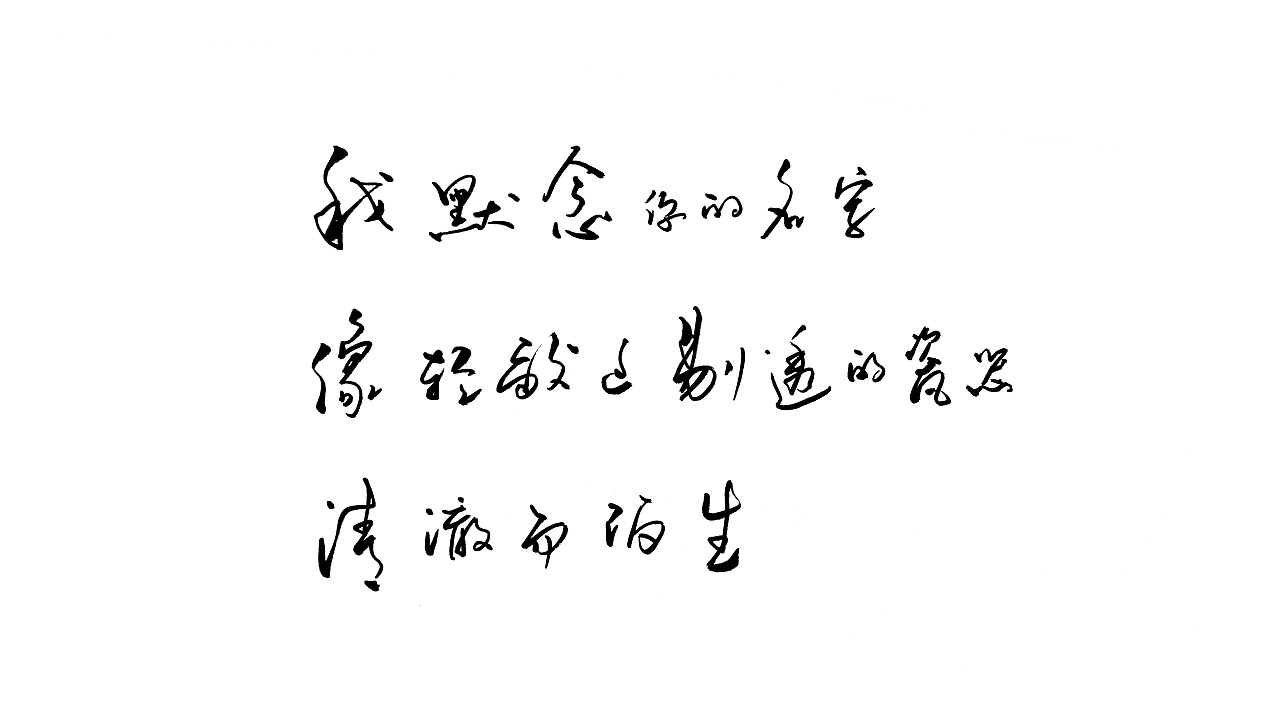 我默念你的名字
像轻敲过剔透的瓷器
清澈而陌生